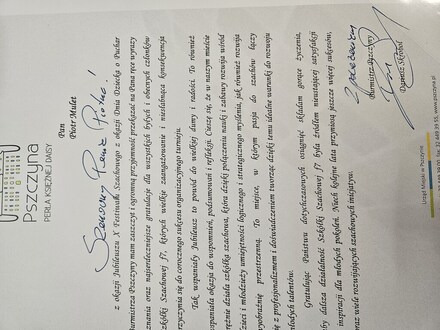 Pszczyna
PERŁA KSIĘŻNEJ DAISY
Pan
Piotr Mulet
Szanowny Panie Piotrze!
z okazji Jubileuszu X Festiwalu Szachowego z okazji Dnia Dziecka o Puchar
Burmistrza Pszczyny mam zaszczyt i ogromną przyjemność przekazać na Pana ręce wyrazy
znania oraz najserdeczniejsze gratulacje dla wszystkich byłych i obecnych członków
zkółki Szachowej f7, których wielkie zaangażowanie i niezłomna konsekwencja
rzyczynia się do corocznego sukcesu organizacyjnego turnieju.
Tak wspaniały Jubileusz to powód do wielkiej dumy i radości. To również
spaniała okazja do wspomnień, podsumowań i refleksji. Cieszę się, że w naszym mieście
ężnie działa szkółka szachowa, która dzięki połączeniu nauki i zabawy rozwija wśród
zieci i młodzieży umiejętności logicznego i strategicznego myślenia, jak również rozwija
yobraźnię przestrzenną. To miejsce, w którym pasja do szachów łączy
ę z profesjonalizmem i doświadczeniem tworząc dzięki temu idealne warunki do rozwoju
młodych talentów.
Gratulując Państwu dotychczasowych osiągnięć składam gorące życzenia,
by dalsza działalność Szkółki Szachowej f7 była źródłem nieustającej satysfakcji
inspiracji dla młodych pokoleń. Niech kolejne lata przyniosą jeszcze więcej sukcesów,
oraz wiele rozwijających szachowych inicjatyw.
Burmistrz Pszczyny
Dariusz Skrobol
Urząd Miejski w Pszczynie
www.pszczyna.pl